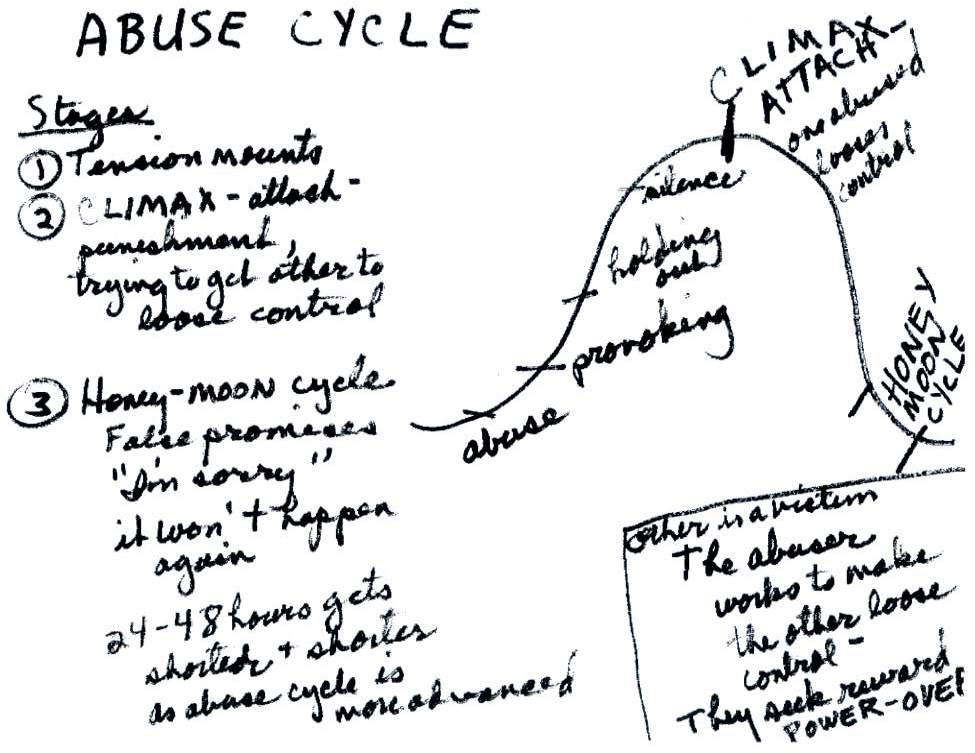 ABUSE CYCLE
Stages
① Tension mounts
② CLIMAX - attach -
punishment,
trying to get other to
loose control
③ Honey-moon cycle
False promises
"I'm sorry"
it won't happen
again
24-48 hours gets
shorter + shorter
as abuse cycle is
more advanced
CLIMAX
ATTACH -
one abused
looses
control
silence
holding
out
provoking
abuse
HONEY
MOON
CYCLE
Other is a victim
The abuser
works to make
the other loose
control -
They seek reward
POWER-OVER